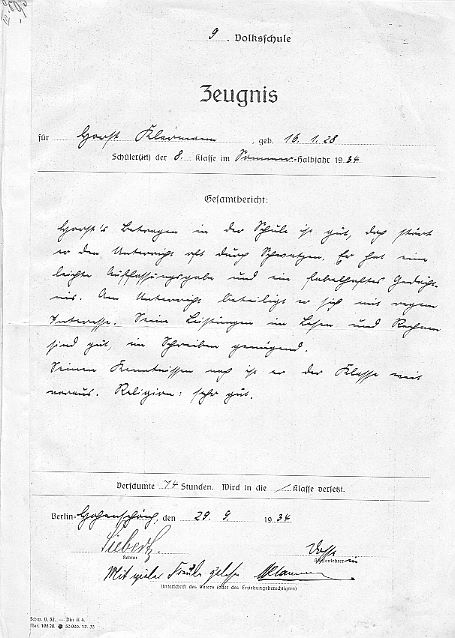 9. Volksschule
Zeugnis
für Horst Klarmann, geb. 16.1.28
Schüler(in) der 8. Klasse im Sommer-Halbjahr 1934
Gesamtbericht:
Horst's Betragen in der Schule ist gut, doch stört
er den Unterricht oft durch Schwatzen. Er hat eine
leichte Auffassungsgabe und ein fabelhaftes Gedächt-
nis. Am Unterricht beteiligt er sich mit regem
Interesse. Seine Leistungen im Lesen und Rechnen
sind gut, im Schreiben genügend.
Seinen Kenntnissen nach ist er der Klasse weit
voraus. Religion: sehr gut.
Versäumte 74 Stunden. Wird in die Klasse versetzt.
Berlin-, den 29.9. 1934
Siebert
Rektor
Mit vieler Freude gelesen
Unterschrift des Vaters (oder des Erziehungsberechtigten)